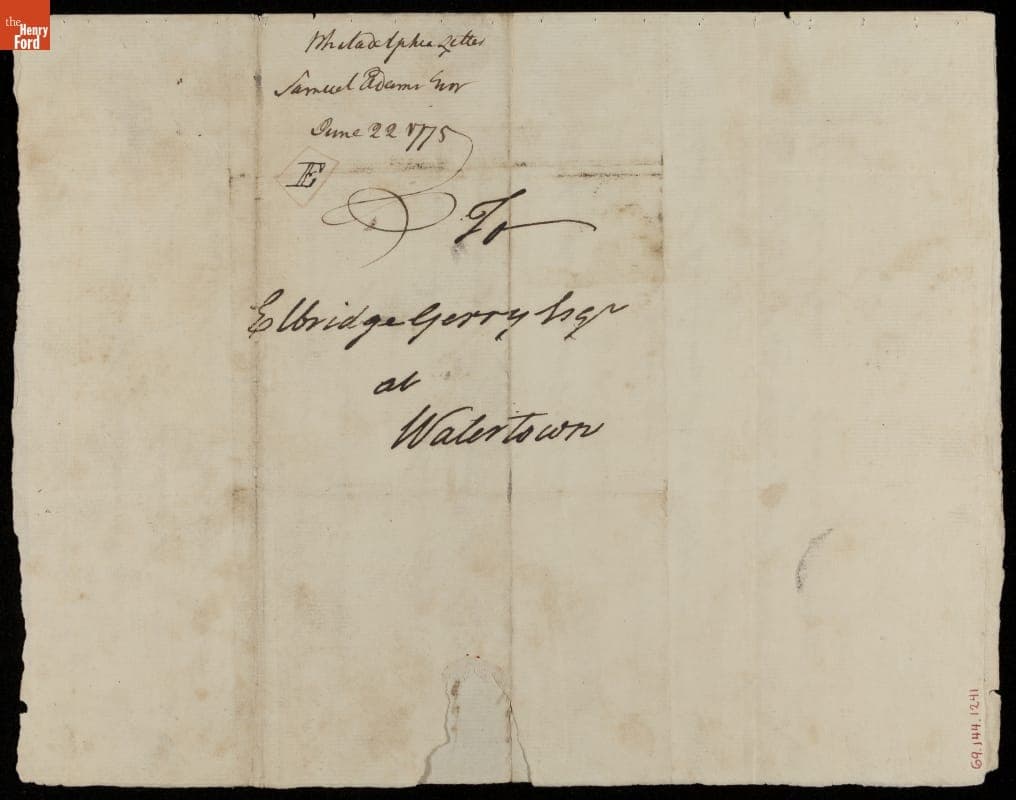 the
Henry
Ford
Philadelphia Letter
Samuel Adams Esqr
June 22 1775
E
To
Elbridge Gerry Esqr
at
Watertown
69.144.12-11